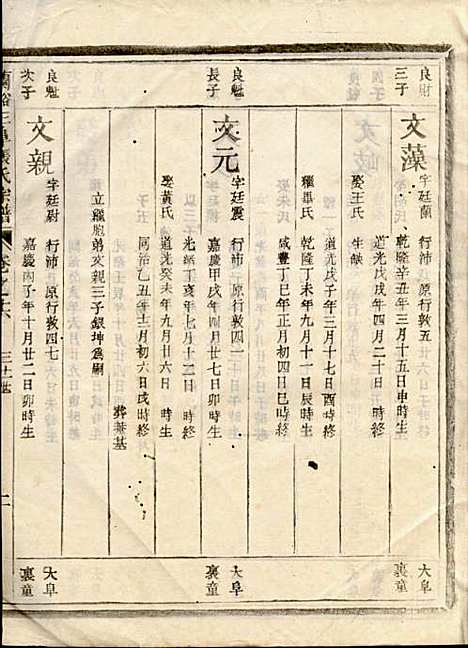 良財
三子
文藻
字廷蘭
行沛
原行敦五
乾隆辛丑年三月十五日申時生
道光戊戌年四月二十日戌時終
娶王氏
生缺
道光戊子年三月十七日酉時終
繼畢氏
乾隆丁未年九月十一日辰時生
咸豐丁巳年正月初四日巳時終
大阜
裏童
良魁
長子
文元
字廷震
行沛
原行敦四一
嘉慶甲戌年四月廿七日卯時生
光緒丁亥年七月十二日
時終
娶黃氏
道光癸未年九月廿六日
時生
同治乙丑年十二月初六日戌時終
立嗣胞弟文親三子銀坤爲嗣
葬菴基
大阜
裏童
良魁
次子
文親
字廷尉
行沛
原行敦四七
嘉慶丙子年十月廿二日卯時生
大阜
裏童
張氏宗譜
卷之六
二